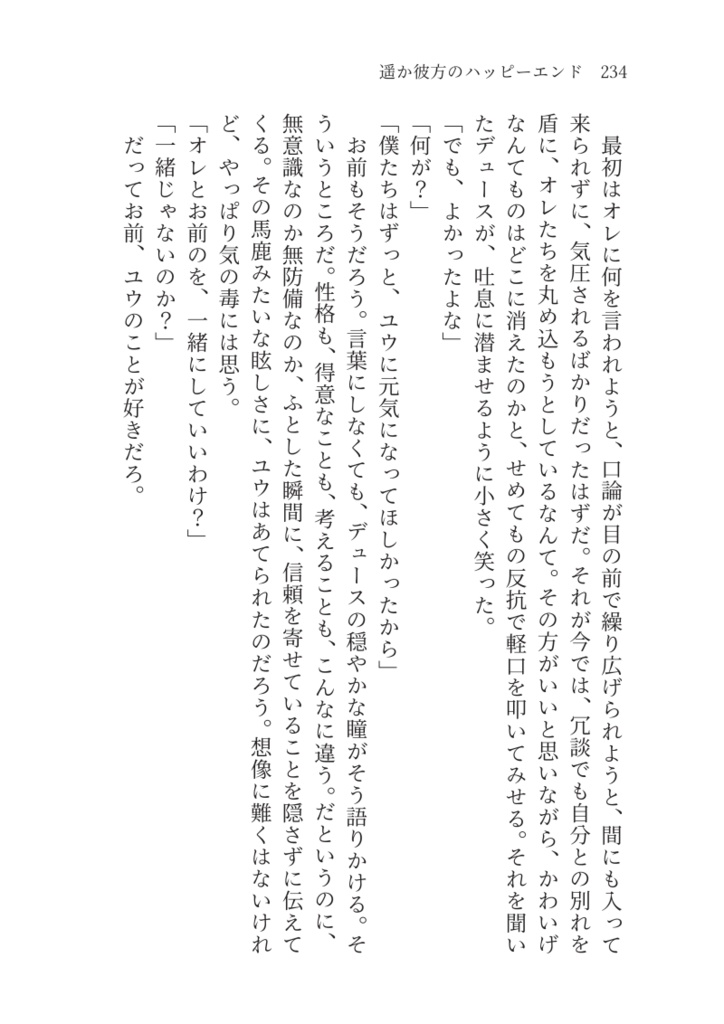 遥か彼方のハッピーエンド 234
最初はオレに何を言われようと、口論が目の前で繰り広げられようと、間にも入って
来られずに、気圧されるばかりだったはずだ。それが今では、冗談でも自分との別れを
盾に、オレたちを丸め込もうとしているなんて。その方がいいと思いながら、かわいげ
なんてものはどこに消えたのかと、せめてもの反抗で軽口を叩いてみせる。それを聞い
たデュースが、吐息に潜ませるように小さく笑った。
「でも、よかったよな」
「何が?」
「僕たちはずっと、ユウに元気になってほしかったから」
お前もそうだろう。言葉にしなくても、デュースの穏やかな瞳がそう語りかける。そ
ういうところだ。性格も、得意なことも、考えることも、こんなに違う。だというのに、
無意識なのか無防備なのか、ふとした瞬間に、信頼を寄せていることを隠さずに伝えて
くる。その馬鹿みたいな眩しさに、ユウはあてられたのだろう。想像に難くはないけれ
ど、やっぱり気の毒には思う。
「オレとお前のを、一緒にしていいわけ?」
「一緒じゃないのか?」
だってお前、ユウのことが好きだろ。